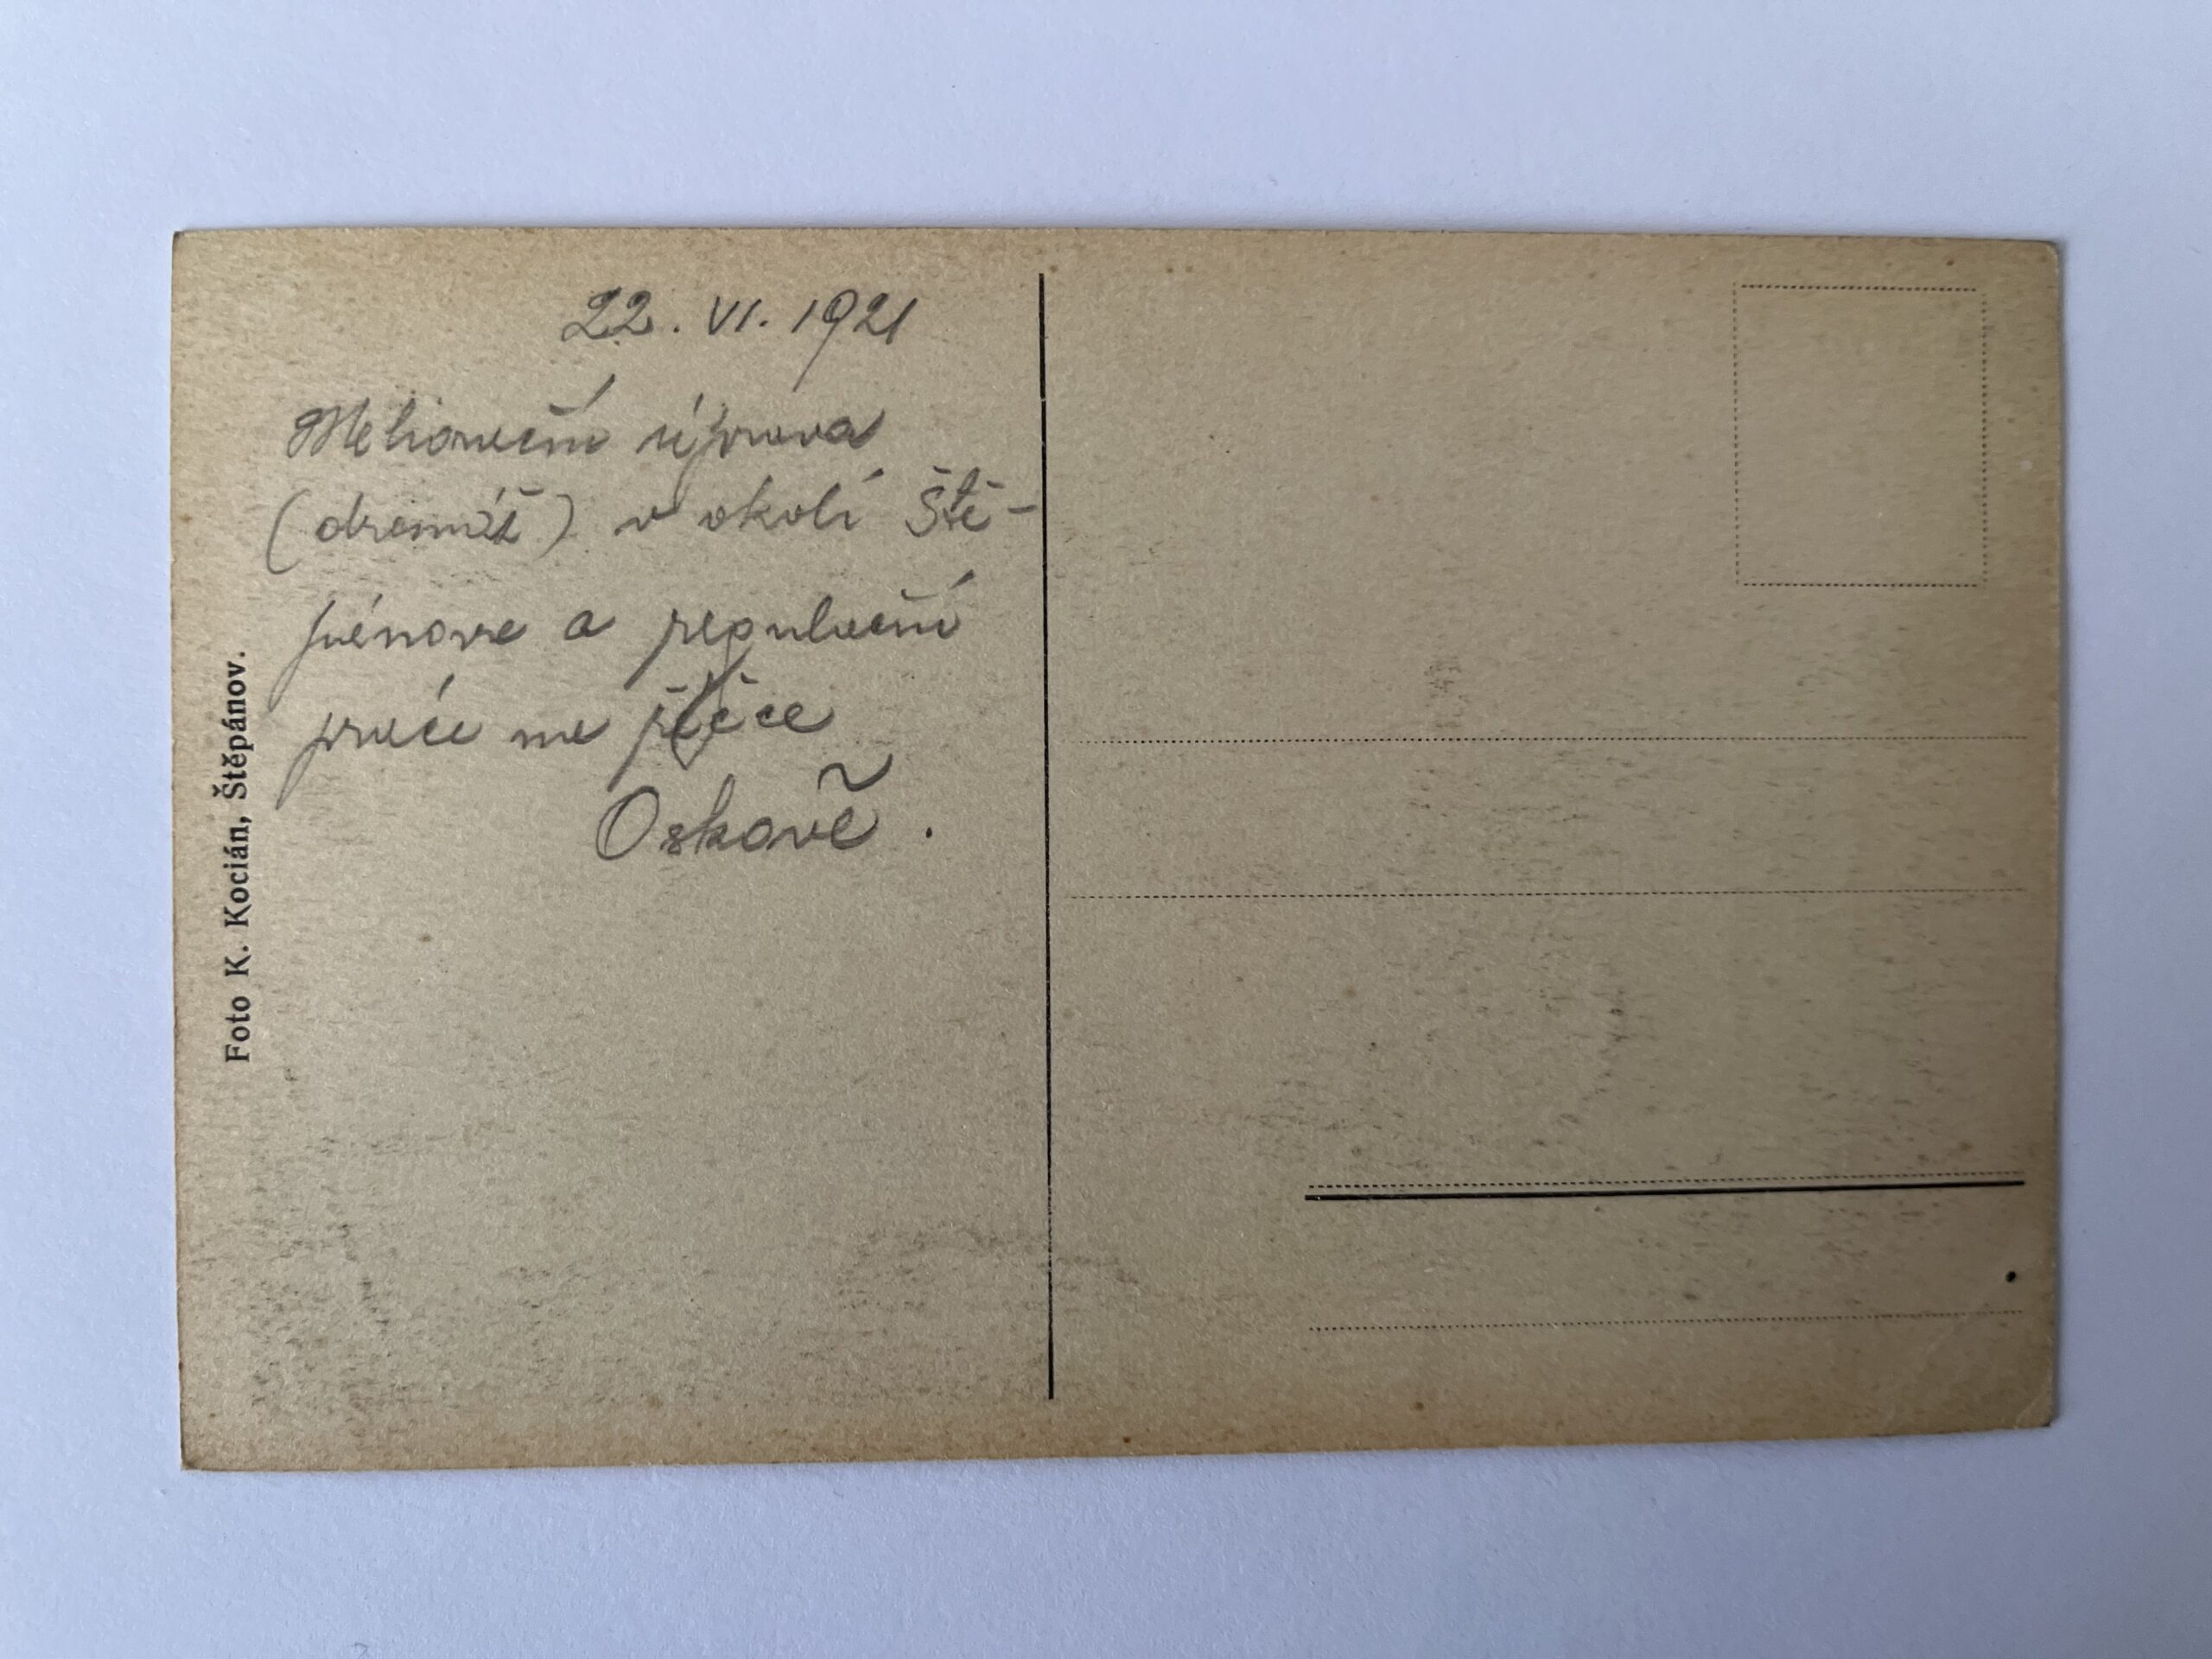 22. VI. 1921
Meliorační úprava
(drenáž) v okolí Ště-
pánova a regulační
práce na řéčce
Oskavě.
Foto K. Kocián, Štěpánov.